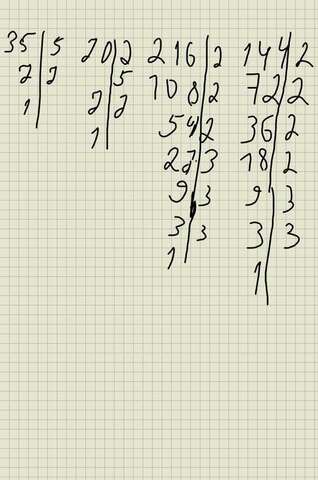 35|5 20|2 216|2 144|2
7|7 |5 108|2 72|2
1| 2|2 54|2 36|2
1| 27|3 18|2
9|3 9|3
3|3 3|3
1| 1|